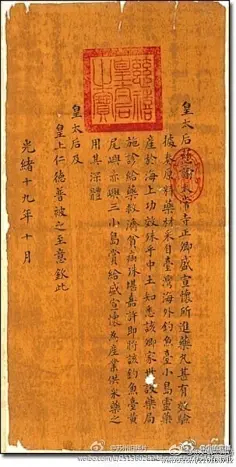 皇太后慈諭太常寺正卿盛宣懷所進藥丸甚有效驗
據奏原料藥材來自臺灣海外釣魚臺小島靈藥
產於海上功效殊乎中土知悉該卿家世設藥局
施診給藥救濟貧病殊堪嘉許即將該釣魚臺黃
尾嶼赤嶼三小島賞給盛宣懷為產業供採藥之
用其深體
皇太后及
皇上仁德普被之至意欽此
光緒十九年十月